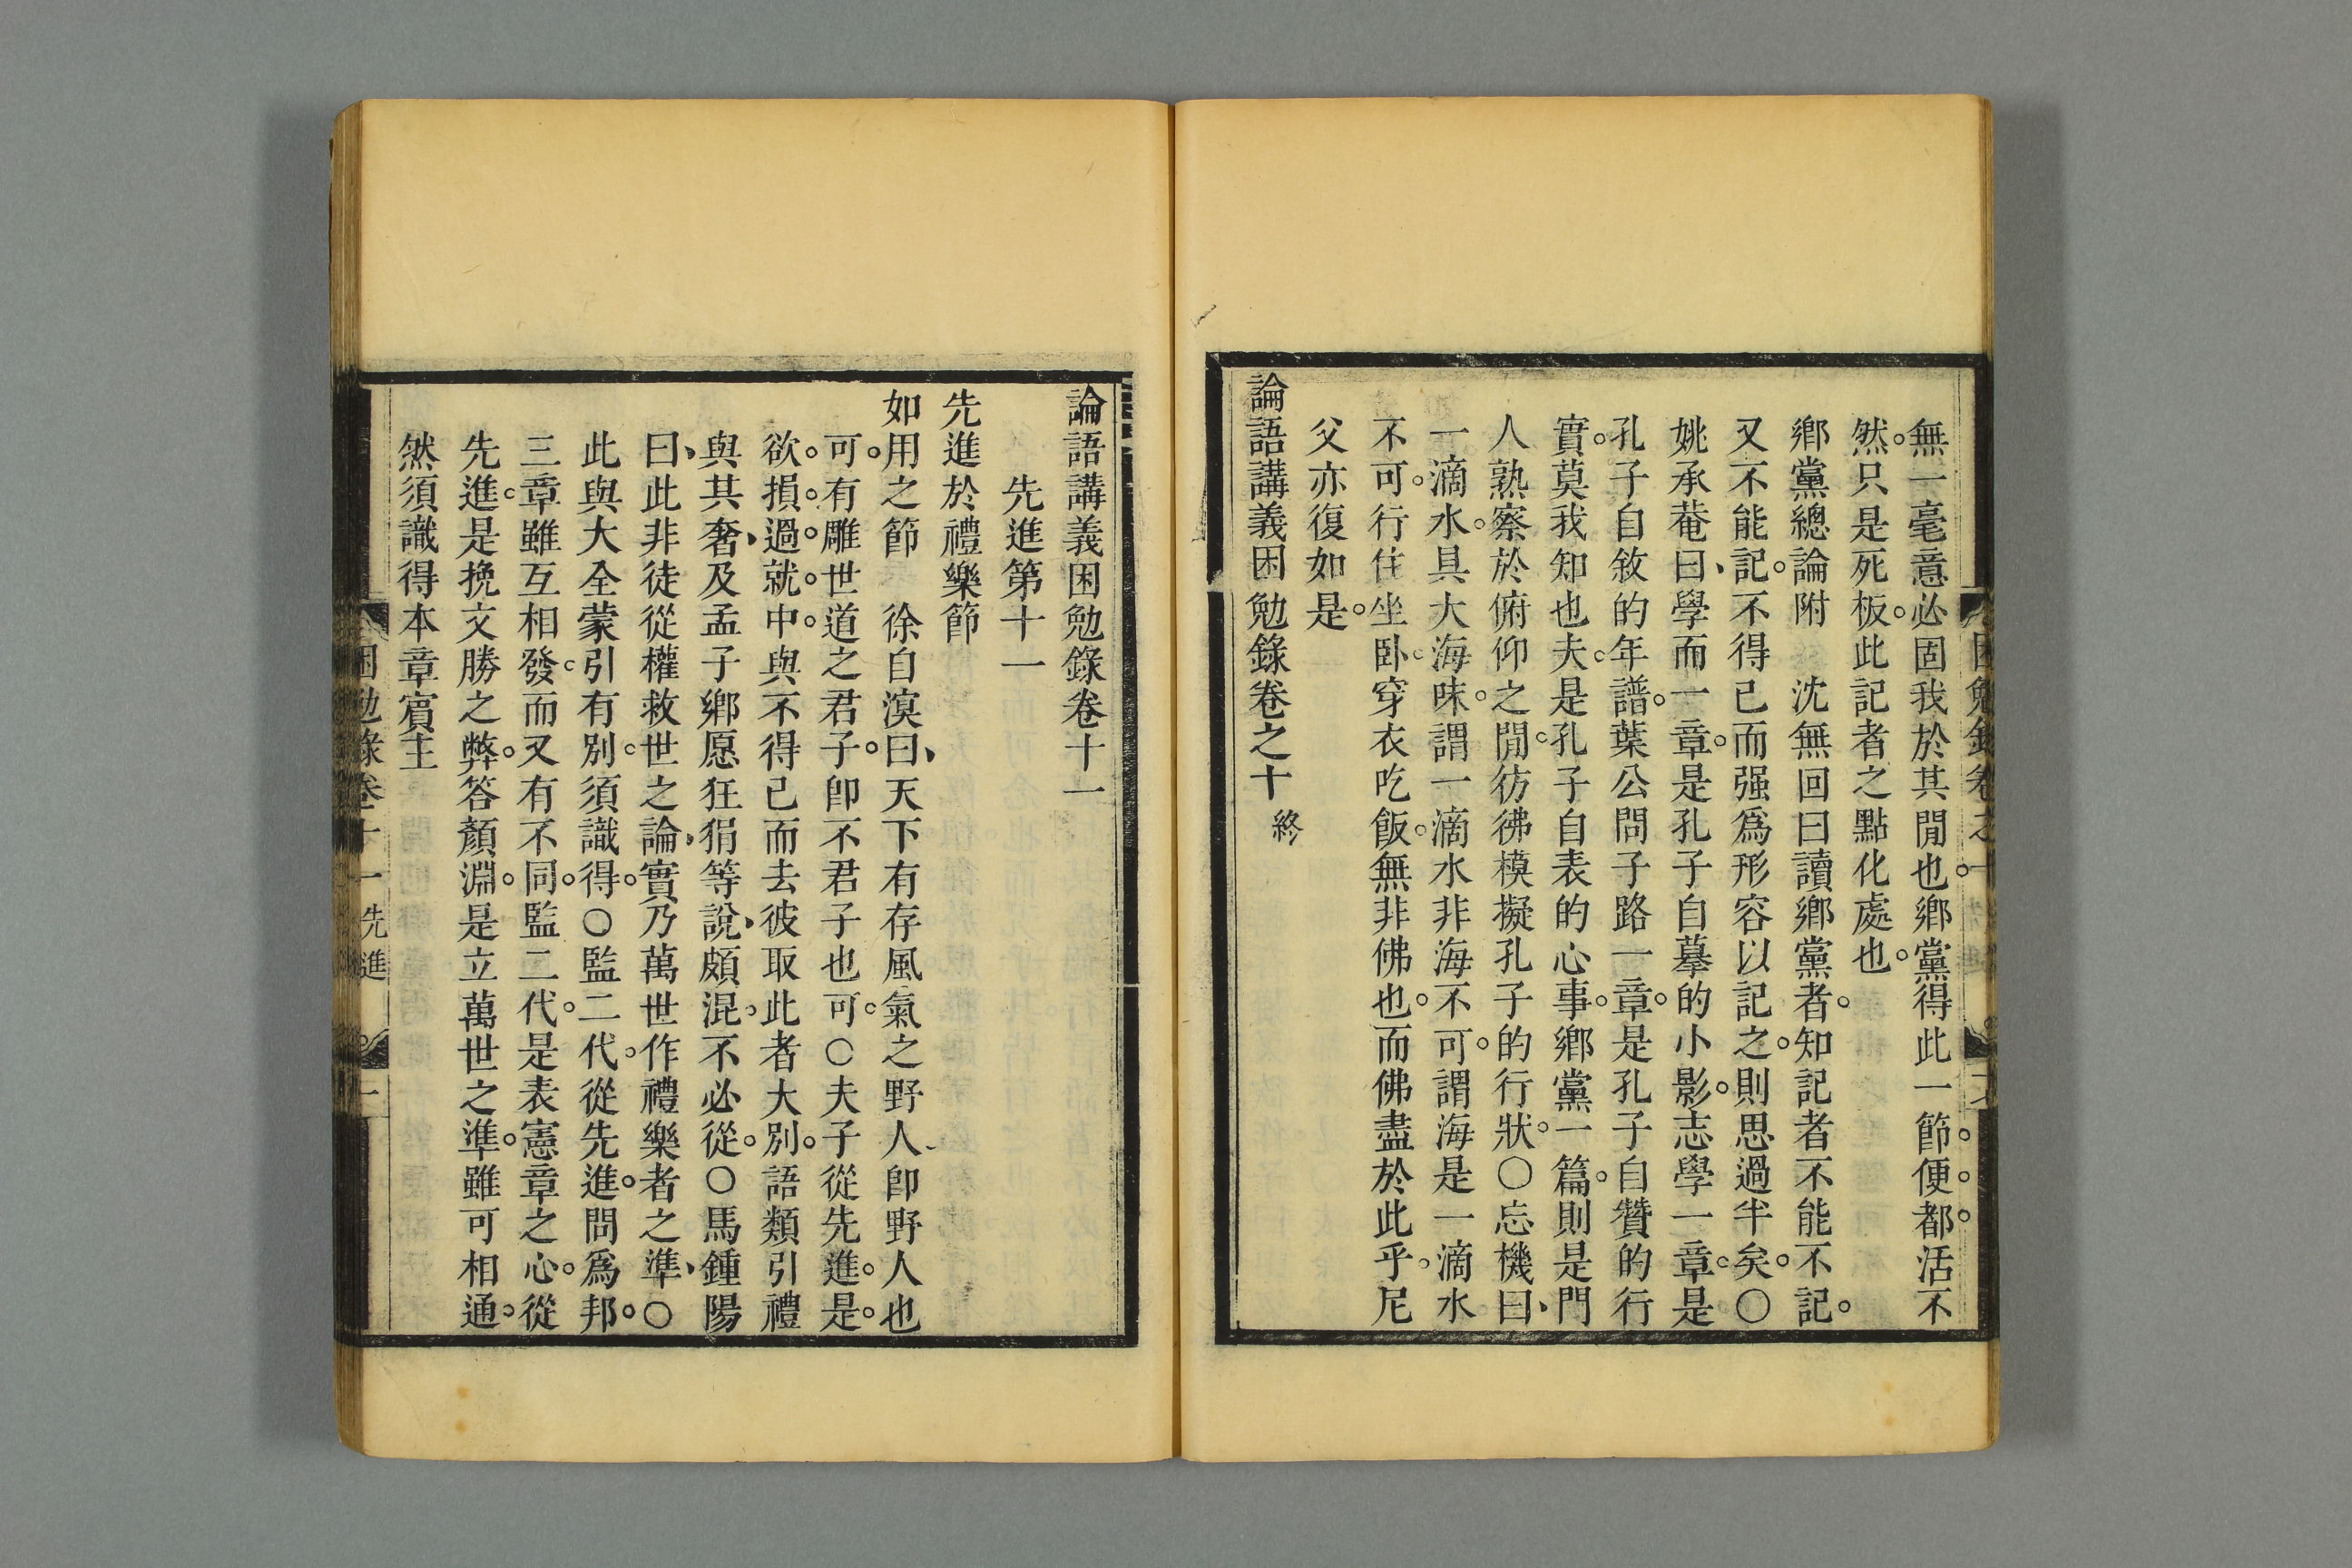 無一毫意必固我於其閒也鄉黨得此一節便都活不
然只是死板此記者之點化處也
鄉黨總論附　沈無回曰讀鄉黨者知記者不能不記
又不能記不得已而强爲形容以記之則思過半矣○
姚承菴曰學而一章是孔子自摹的小影志學一章是
孔子自敘的年譜葉公問子路一章是孔子自贊的行
實莫我知也夫是孔子自表的心事鄉黨一篇則是門
人熟察於俯仰之閒彷彿模擬孔子的行狀○忘機曰
一滴水具大海味謂一滴水非海不可謂海是一滴水
不可行住坐臥穿衣吃飯無非佛也而佛盡於此乎尼
父亦復如是
論語講義困勉錄卷之十　終
論語講義困勉錄卷十一
先進第十一
先進於禮樂節
如用之節　徐自溟曰天下有存風氣之野人卽野人也
可有雕世道之君子卽不君子也可○夫子從先進是
欲損過就中與不得已而去彼取此者大別語類引禮
與其奢及孟子鄉愿狂狷等說頗混不必從○馬鍾陽
曰此非徒從權救世之論實乃萬世作禮樂者之準○
此與大全蒙引有別須識得○監二代從先進問爲邦
三章雖互相發而又有不同監二代是表憲章之心從
先進是挽文勝之弊答顏淵是立萬世之準雖可相通
然須識得本章賓主
困勉錄卷十一　先進　一